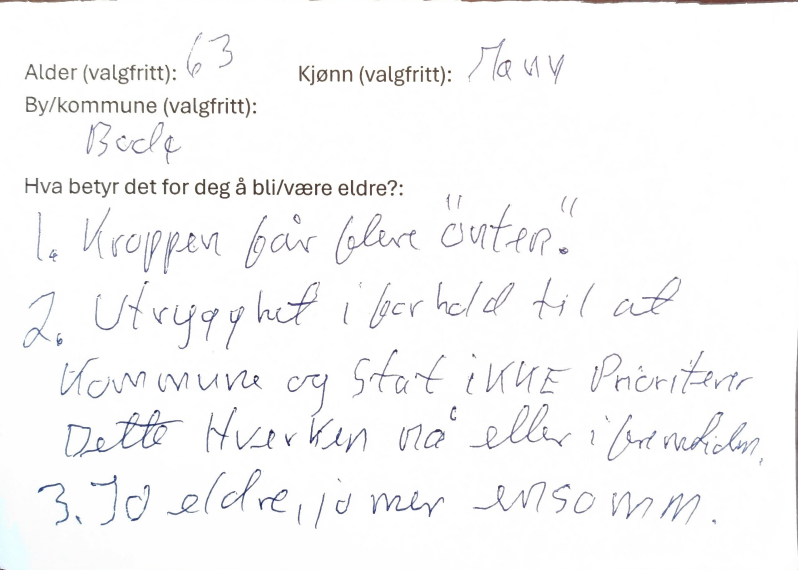 Alder (valgfritt): 63 Kjønn (valgfritt): Mann
By/kommune (valgfritt):
Bodø
Hva betyr det for deg å bli/være eldre?:
1. Kroppen får flere "vnter".
2. Utrygghet i forhold til at
Kommune og Stat iKKE Prioriterer
Dette Hverken nå eller i fremtiden.
3. Jo eldre, jo mer ensomm.